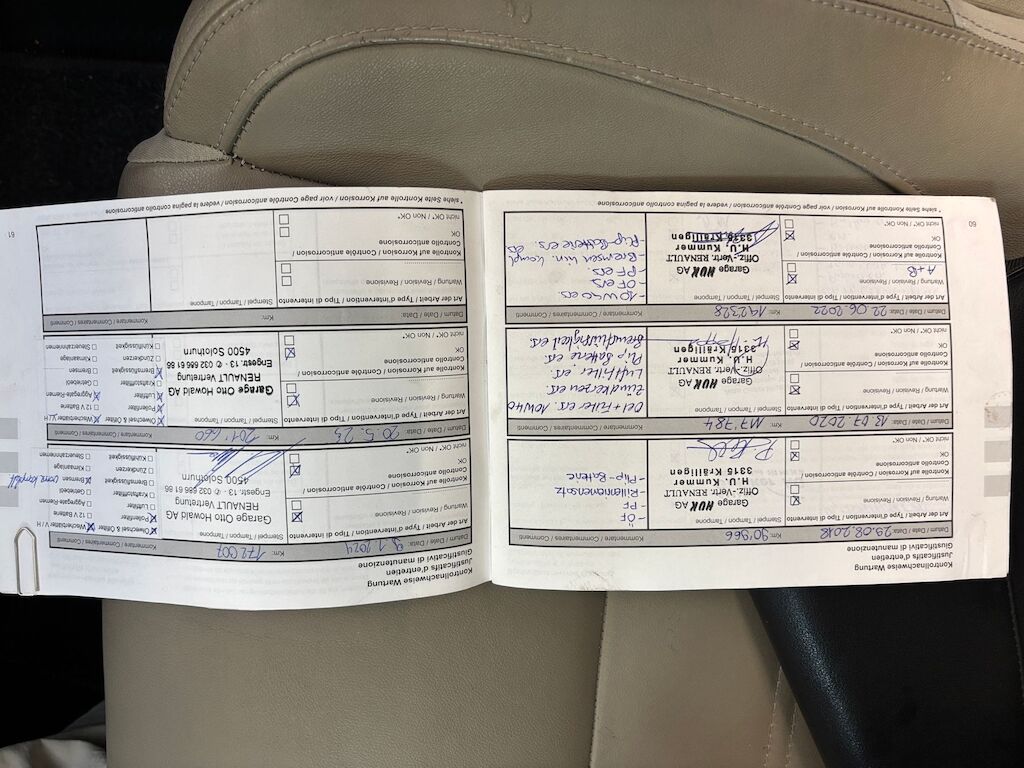 Kontrollnachweise Wartung
Justificatifs d'entretien
Giustificativi di manutenzione
Datum / Date / Data: 29.08.2018
Km: 90'966
Kommentare / Commentaires / Commenti
Art der Arbeit / Type d'intervention / Tipo di intervento
Stempel / Tampon / Tampone
Wartung / Revision / Revisione
Garage HUK AG
Offiz.-Vertr. RENAULT
H.U. Kummer
3315 Kräiligen
Kontrolle auf Korrosion /
Contrôle anticorrosion /
Controllo anticorrosione
OK
nicht OK* / Non OK*
- ÖF
- PF
- Riemenansatz
- Plip-Batterie
Datum / Date / Data: 13.07.2020
Km: 117'384
Kommentare / Commentaires / Commenti
Art der Arbeit / Type d'intervention / Tipo di intervento
Stempel / Tampon / Tampone
Wartung / Revision / Revisione
Garage HUK AG
Offiz.-Vertr. RENAULT
H.U. Kummer
3315 Kräiligen
Kontrolle auf Korrosion /
Contrôle anticorrosion /
Controllo anticorrosione
OK
nicht OK* / Non OK*
Oel + Filter ers. 10W40
Zündkerzen ers.
Luftfilter ers.
Plip Batterie ers.
Bremsflüssigkeit ers.
Datum / Date / Data: 22.06.2022
Km: 142328
Kommentare / Commentaires / Commenti
Art der Arbeit / Type d'intervention / Tipo di intervento
Stempel / Tampon / Tampone
Wartung / Revision / Revisione
A+B
Garage HUK AG
Offiz.-Vertr. RENAULT
H.U. Kummer
3315 Kräiligen
Kontrolle auf Korrosion /
Contrôle anticorrosion /
Controllo anticorrosione
OK
nicht OK* / Non OK*
- 10W40 ers
- ÖF ers
- PF ers.
- Bremsen hin. kompl
- Plip-Batterie ers.
* siehe Seite Kontrolle auf Korrosion / voir page Contrôle anticorrosion / vedere la pagina controllo anticorrosione
60
Kontrollnachweise Wartung
Justificatifs d'entretien
Giustificativi di manutenzione
Datum / Date / Data: 9.1.2024
Km: 172'007
Kommentare / Commentaires / Commenti
Art der Arbeit / Type d'intervention / Tipo di intervento
Stempel / Tampon / Tampone
Wartung / Revision / Revisione
Garage Otto Howald AG
RENAULT Vertretung
Engestr. 13 · ✆ 032 686 61 86
4500 Solothurn
Kontrolle auf Korrosion /
Contrôle anticorrosion /
Controllo anticorrosione
OK
nicht OK* / Non OK*
Ölwechsel & Ölfilter
Wischerblätter V / H
Pollenfilter
12 V Batterie
Luftfilter
Aggregate-Riemen
Kraftstoffilter
Getriebeöl
Bremsflüssigkeit
Bremsen vorne komplett
Zündkerzen
Klimaanlage
Kühlflüssigkeit
Steuerzahnriemen
Datum / Date / Data: 20.5.25
Km: 201'660
Kommentare / Commentaires / Commenti
Art der Arbeit / Type d'intervention / Tipo di intervento
Stempel / Tampon / Tampone
Wartung / Revision / Revisione
Garage Otto Howald AG
RENAULT Vertretung
Engestr. 13 · ✆ 032 686 61 86
4500 Solothurn
Kontrolle auf Korrosion /
Contrôle anticorrosion /
Controllo anticorrosione
OK
nicht OK* / Non OK*
Ölwechsel & Ölfilter
Wischerblätter V / H
Pollenfilter
12 V Batterie
Luftfilter
Aggregate-Riemen
Kraftstoffilter
Getriebeöl
Bremsflüssigkeit
Bremsen
Zündkerzen
Klimaanlage
Kühlflüssigkeit
Steuerzahnriemen
Datum / Date / Data:
Km:
Kommentare / Commentaires / Commenti
Art der Arbeit / Type d'intervention / Tipo di intervento
Stempel / Tampon / Tampone
Wartung / Revision / Revisione
Kontrolle auf Korrosion /
Contrôle anticorrosion /
Controllo anticorrosione
OK
nicht OK* / Non OK*
* siehe Seite Kontrolle auf Korrosion / voir page Contrôle anticorrosion / vedere la pagina controllo anticorrosione
61